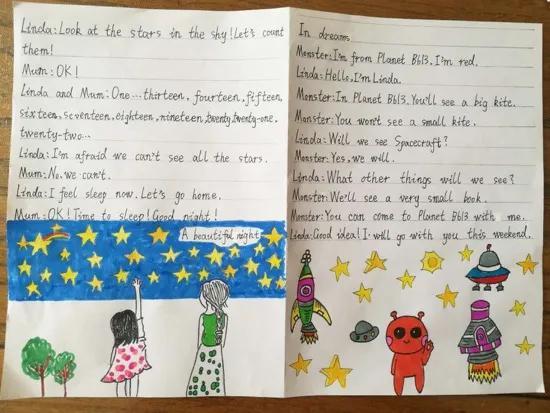 Linda: Look at the stars in the shy! Let's count
them!
Mum: OK!
Linda and Mum: One... thirteen, fourteen, fifteen,
sixteen, seventeen, eighteen, nineteen, twenty, twenty-one,
twenty-two...
Linda: I'm afraid we can't see all the stars.
Mum: No, we can't.
Linda: I feel sleep now. Let's go home.
Mum: OK! Time to sleep! Good night!
A beautiful night
In dreams
Monster: I'm from Planet B613. I'm red.
Linda: Hello, I'm Linda.
Monster: In Planet B613. You'll see a big kite.
Monster: You won't see a small kite.
Linda: Will we see Spacecraft?
Monster: Yes, we will.
Linda: What other things will we see?
Monster: We'll see a very small book.
Monster: You can come to Planet B613 with me.
Linda: Good idea! I will go with you this weekend.